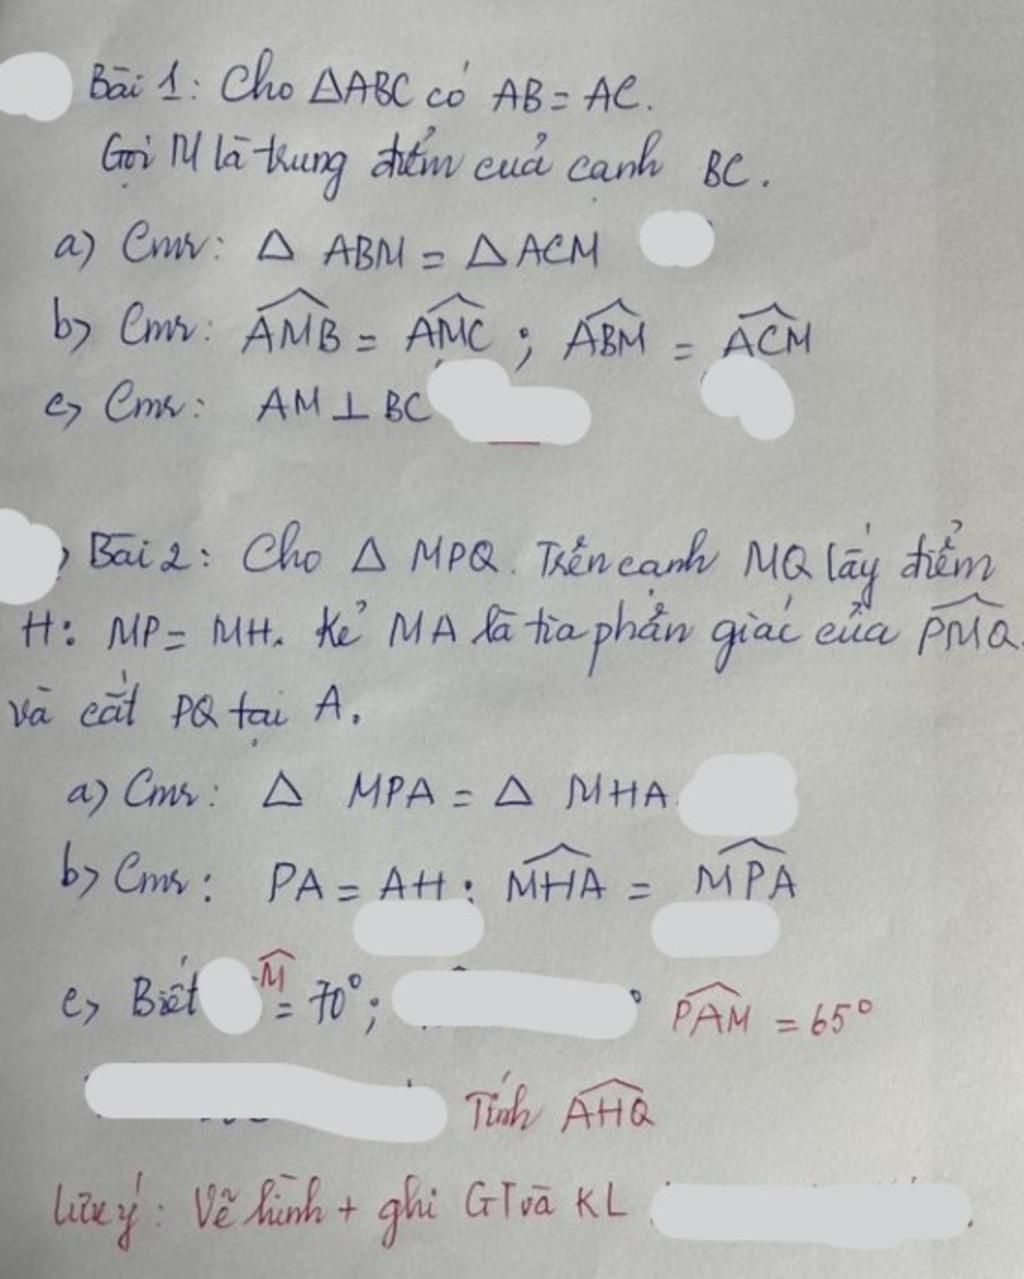 Bài 1: Cho ΔABC có AB = AC.
Gọi M là trung điểm của cạnh BC.
a) Cmr: Δ ABM = Δ ACM
b) Cmr: $\widehat{AMB}$ = $\widehat{AMC}$ ; $\widehat{ABM}$ = $\widehat{ACM}$
c) Cmr: AM ⊥ BC
Bài 2: Cho Δ MPQ. Trên cạnh MQ lấy điểm
H: MP = MH. Kẻ MA là tia phân giác của $\widehat{PMQ}$
và cắt PQ tại A.
a) Cmr: Δ MPA = Δ MHA
b) Cmr: PA = AH; $\widehat{MHA}$ = $\widehat{MPA}$
c) Biết $\widehat{M}$ = 70°; $\widehat{PAM}$ = 65°
Tính $\widehat{AHQ}$
Lưu ý: Vẽ hình + ghi GT và KL